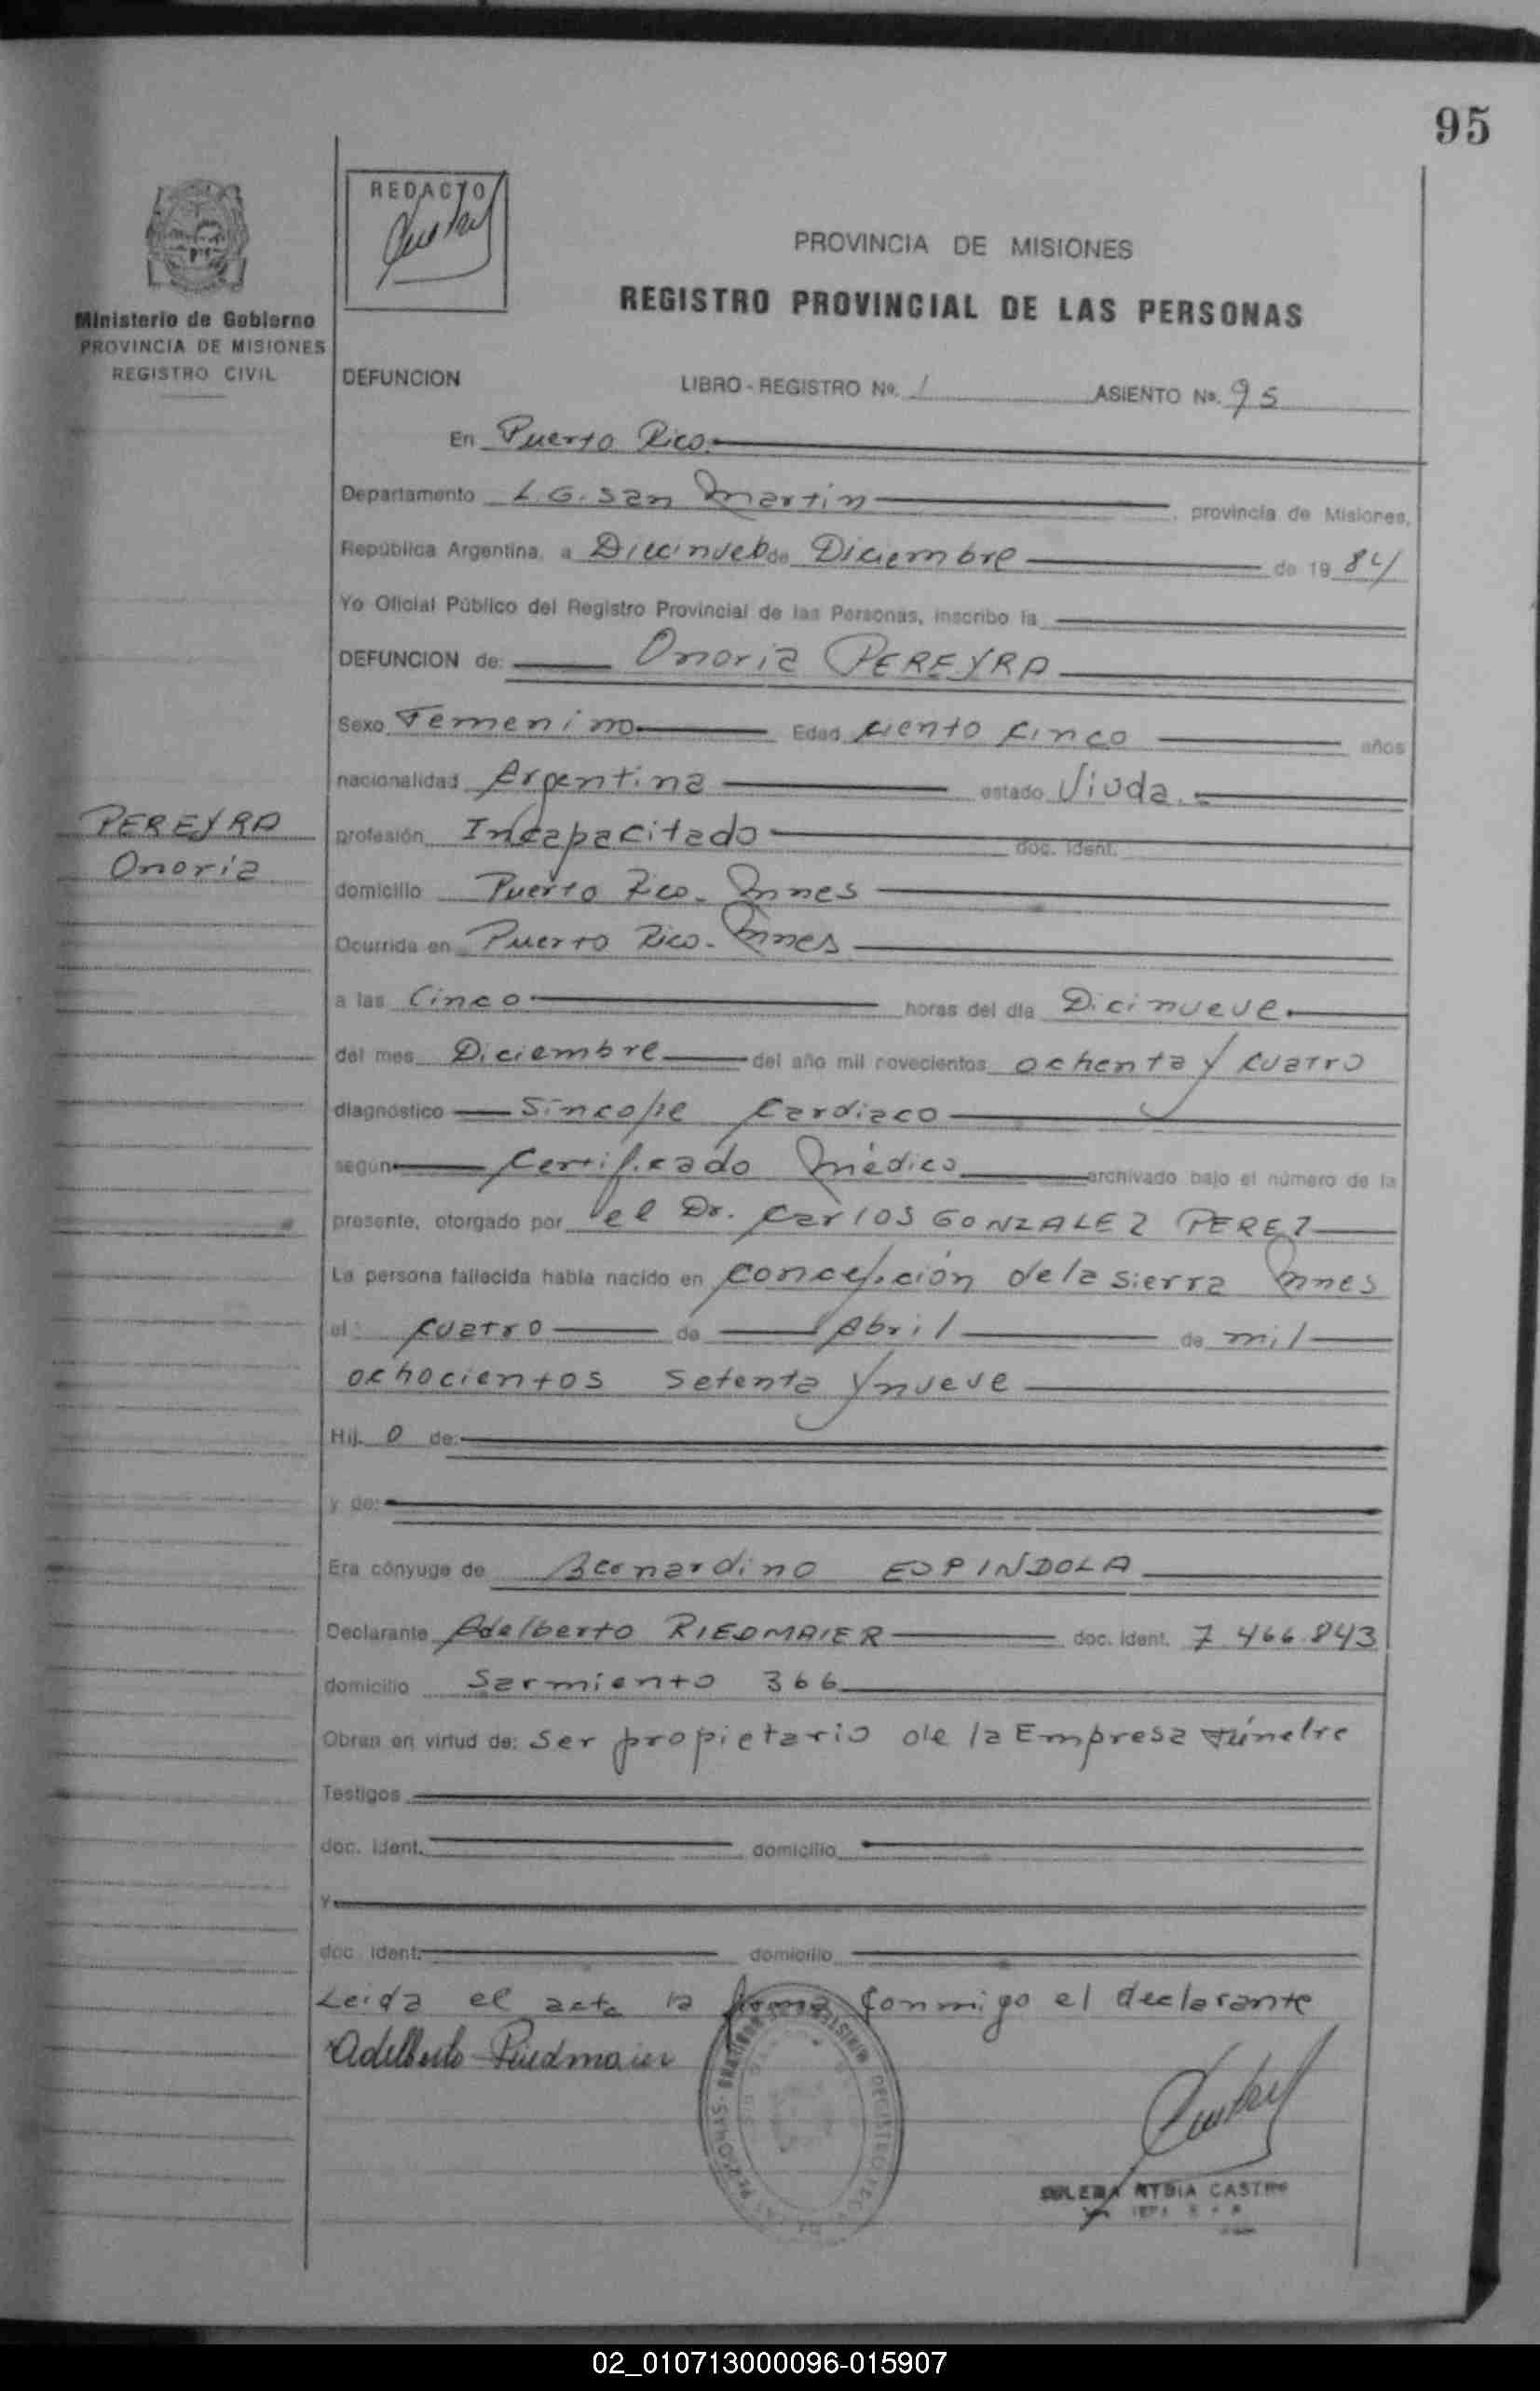 95
REDACTO
PROVINCIA DE MISIONES
REGISTRO PROVINCIAL DE LAS PERSONAS
Ministerio de Gobierno
PROVINCIA DE MISIONES
REGISTRO CIVIL
DEFUNCION LIBRO - REGISTRO Nº. 1 ASIENTO Nº. 95
En Puerto Rico.
Departamento L.G. San Martin, provincia de Misiones,
República Argentina, a Diecinueb de Diciembre de 19 84
Yo Oficial Público del Registro Provincial de las Personas, inscribo la
DEFUNCION de: Onoria PEREYRA
Sexo Femenino Edad ciento cinco años
nacionalidad Argentina estado Viuda.
PEREYRA
Onoria
profesión Incapacitado doc. ident.
domicilio Puerto Rico. Mnes
Ocurrida en Puerto Rico. Mnes
a las Cinco horas del día Dicinueve.
del mes Diciembre del año mil novecientos ochenta y cuatro
diagnóstico Sincope Cardiaco
según Certificado Médico archivado bajo el número de la
presente, otorgado por el Dr. Carlos GONZALEZ PEREZ
La persona fallecida había nacido en Concepción de la Sierra Mnes
el cuatro de Abril de mil
ochocientos Setenta y nueve
Hij. o de:
y de:
Era cónyuge de Bernardino ESPINDOLA
Declarante Adelberto RIEDMAIER doc. ident. 7 466.843
domicilio Sarmiento 366
Obran en virtud de: Ser propietario de la Empresa Fúnebre
Testigos
doc. ident. domicilio
y
doc. ident. domicilio
Leida el acta la firma conmigo el declarante
Adelberto Riedmaier
CASTRO
02_010713000096-015907